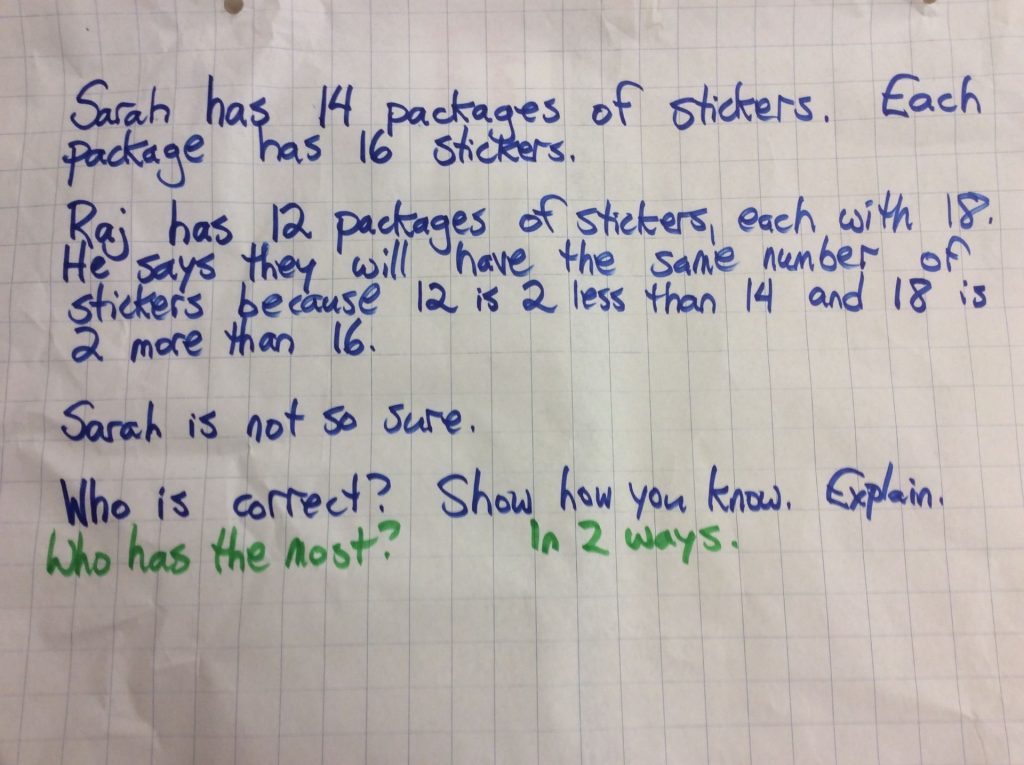 Sarah has 14 packages of stickers. Each
package has 16 stickers.
Raj has 12 packages of stickers, each with 18.
He says they will have the same number of
stickers because 12 is 2 less than 14 and 18 is
2 more than 16.
Sarah is not so sure.
Who is correct? Show how you know. Explain.
Who has the most? In 2 ways.